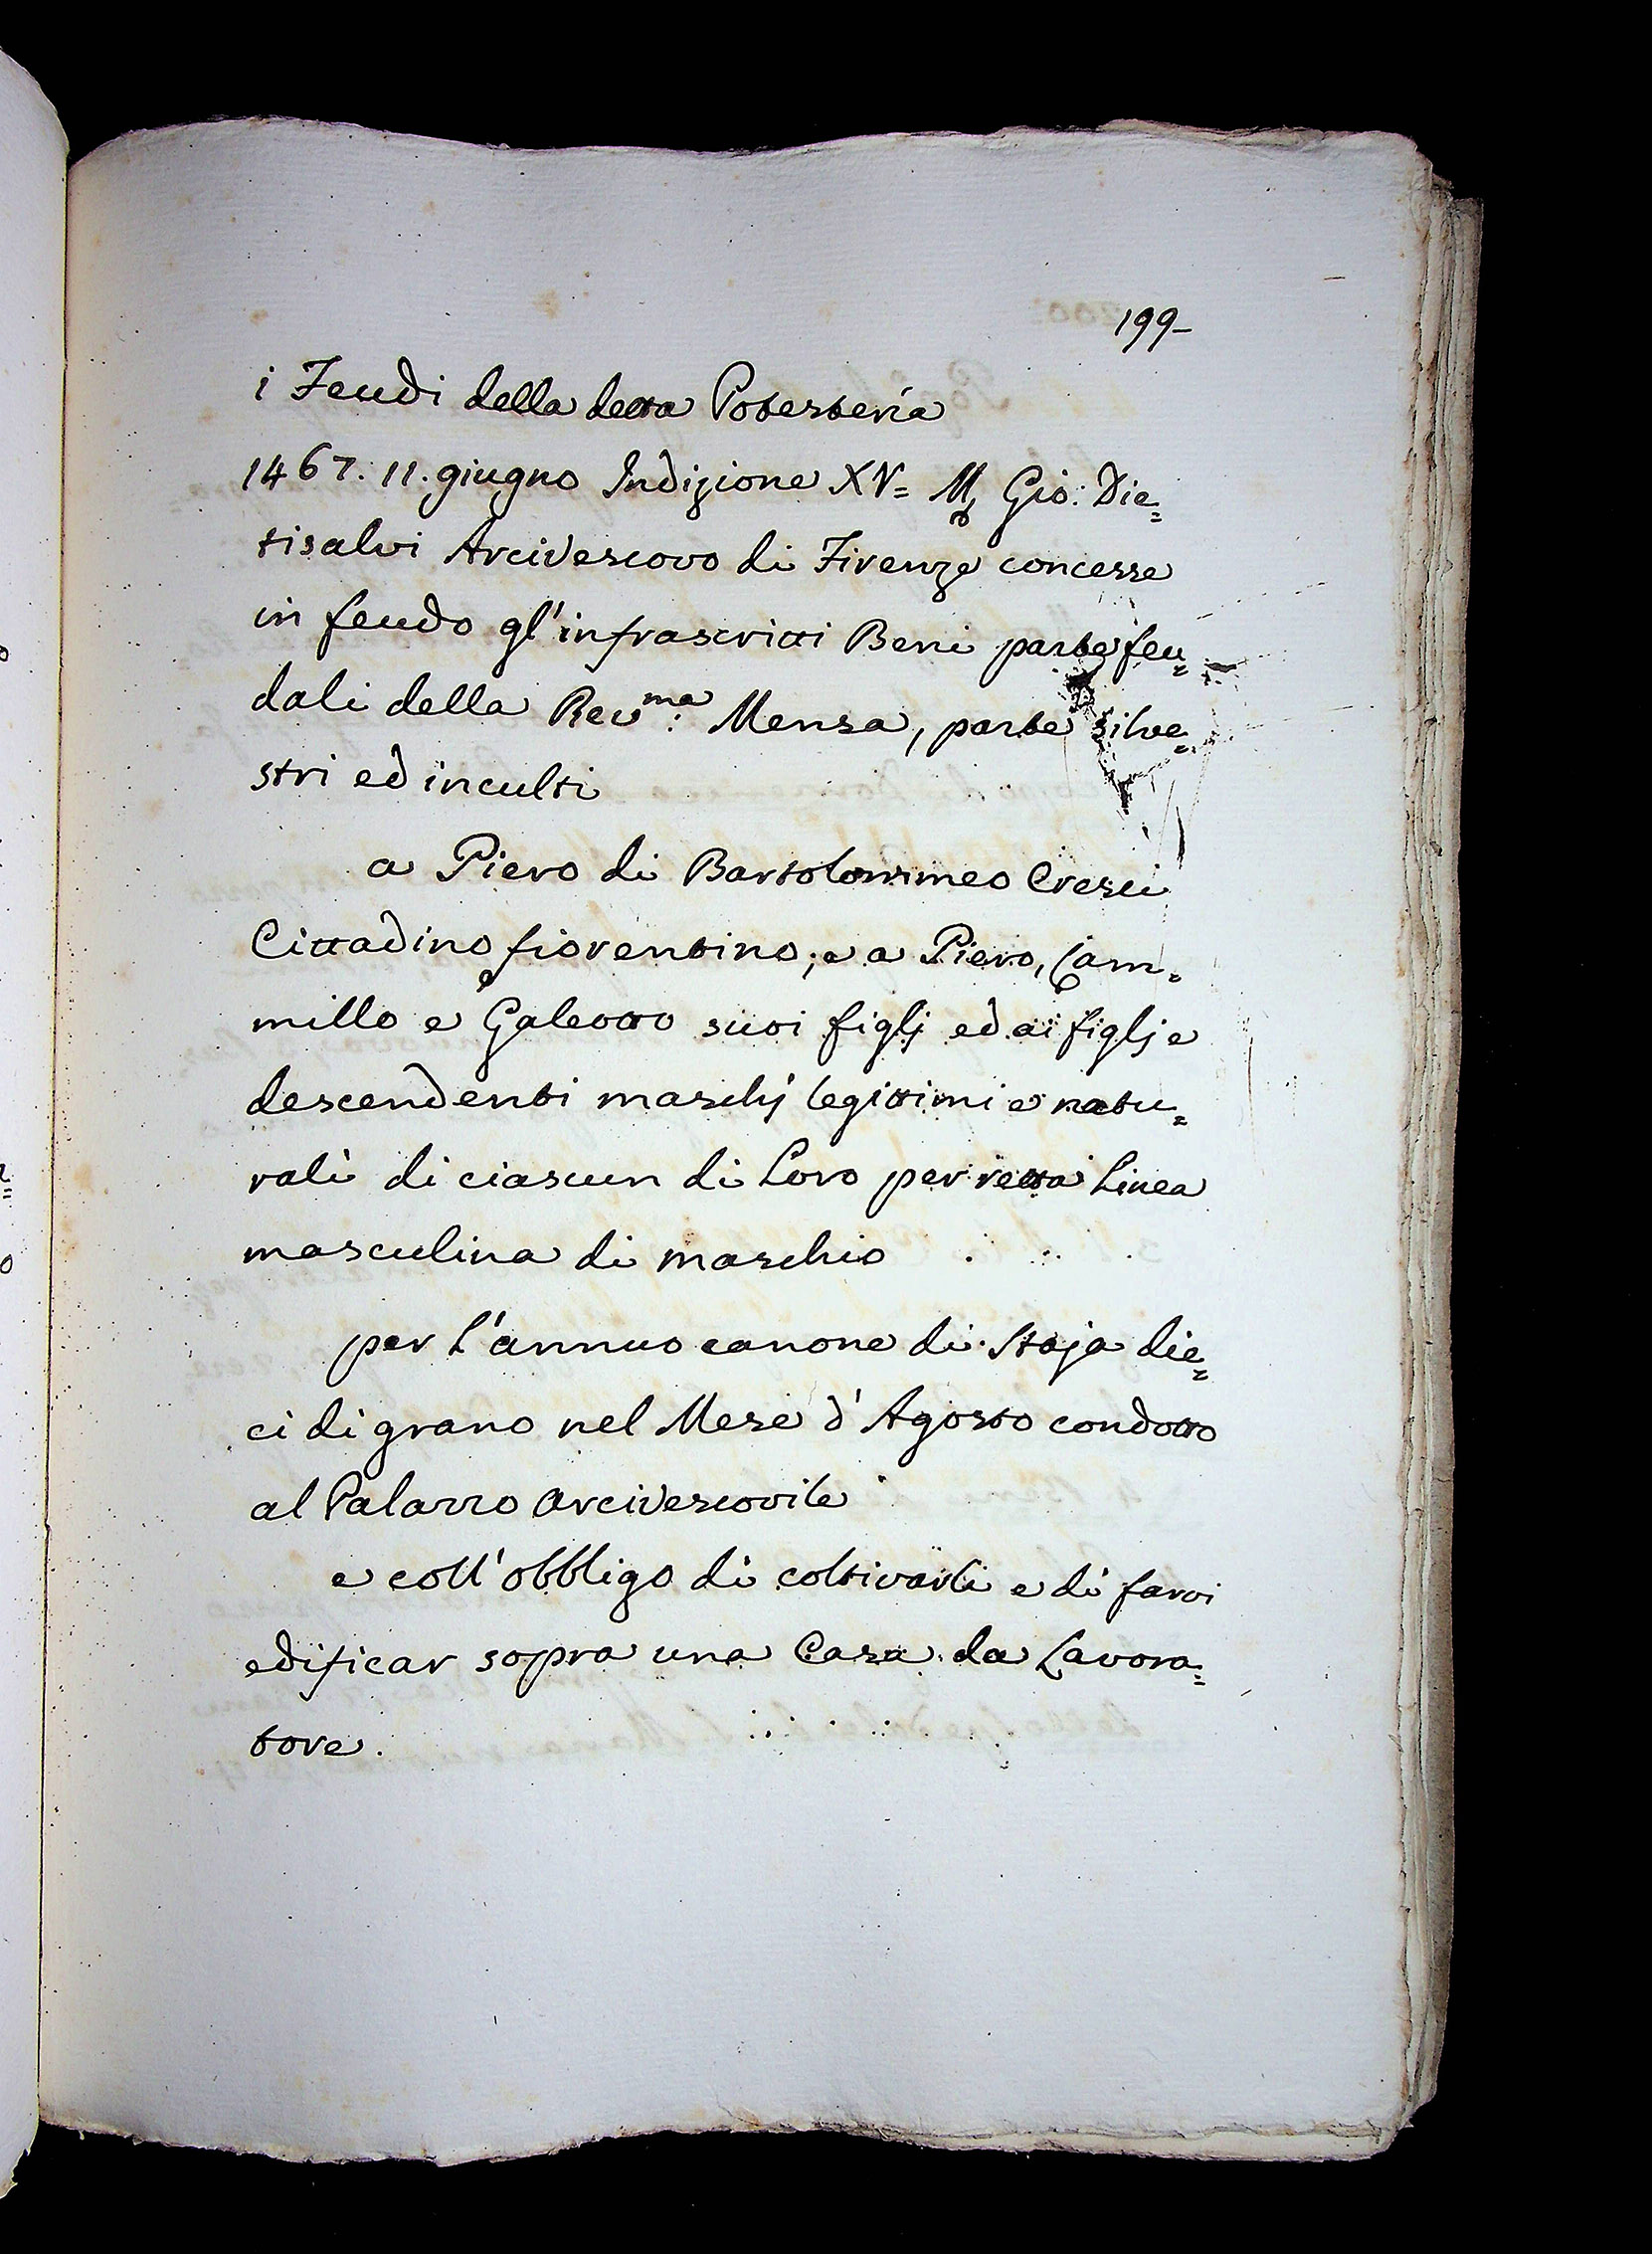 199
i Feudi della detta Potesteria
1467. 11. giugno Indizione XV= Mg Gio: Die=
tisalvi Arcivescovo di Firenze concesse
in feudo gl'infrascritti Beni parte feu=
dali della Rev.ma Mensa, parte silve=
stri ed inculti
a Piero di Bartolommeo Cresci
Cittadino fiorentino; e a Piero, Cam=
millo e Galeotto suoi figlj ed ai figlj e
descendenti maschj legittimi e natu=
rali di ciascun di Loro per retta Linea
masculina di maschio
per l'annuo canone di Staja die=
ci di grano nel Mese d'Agosto condotto
al Palazzo Arcivescovile
e coll'obbligo di coltivarli e di farvi
edificar sopra una Casa da Lavora=
tore.